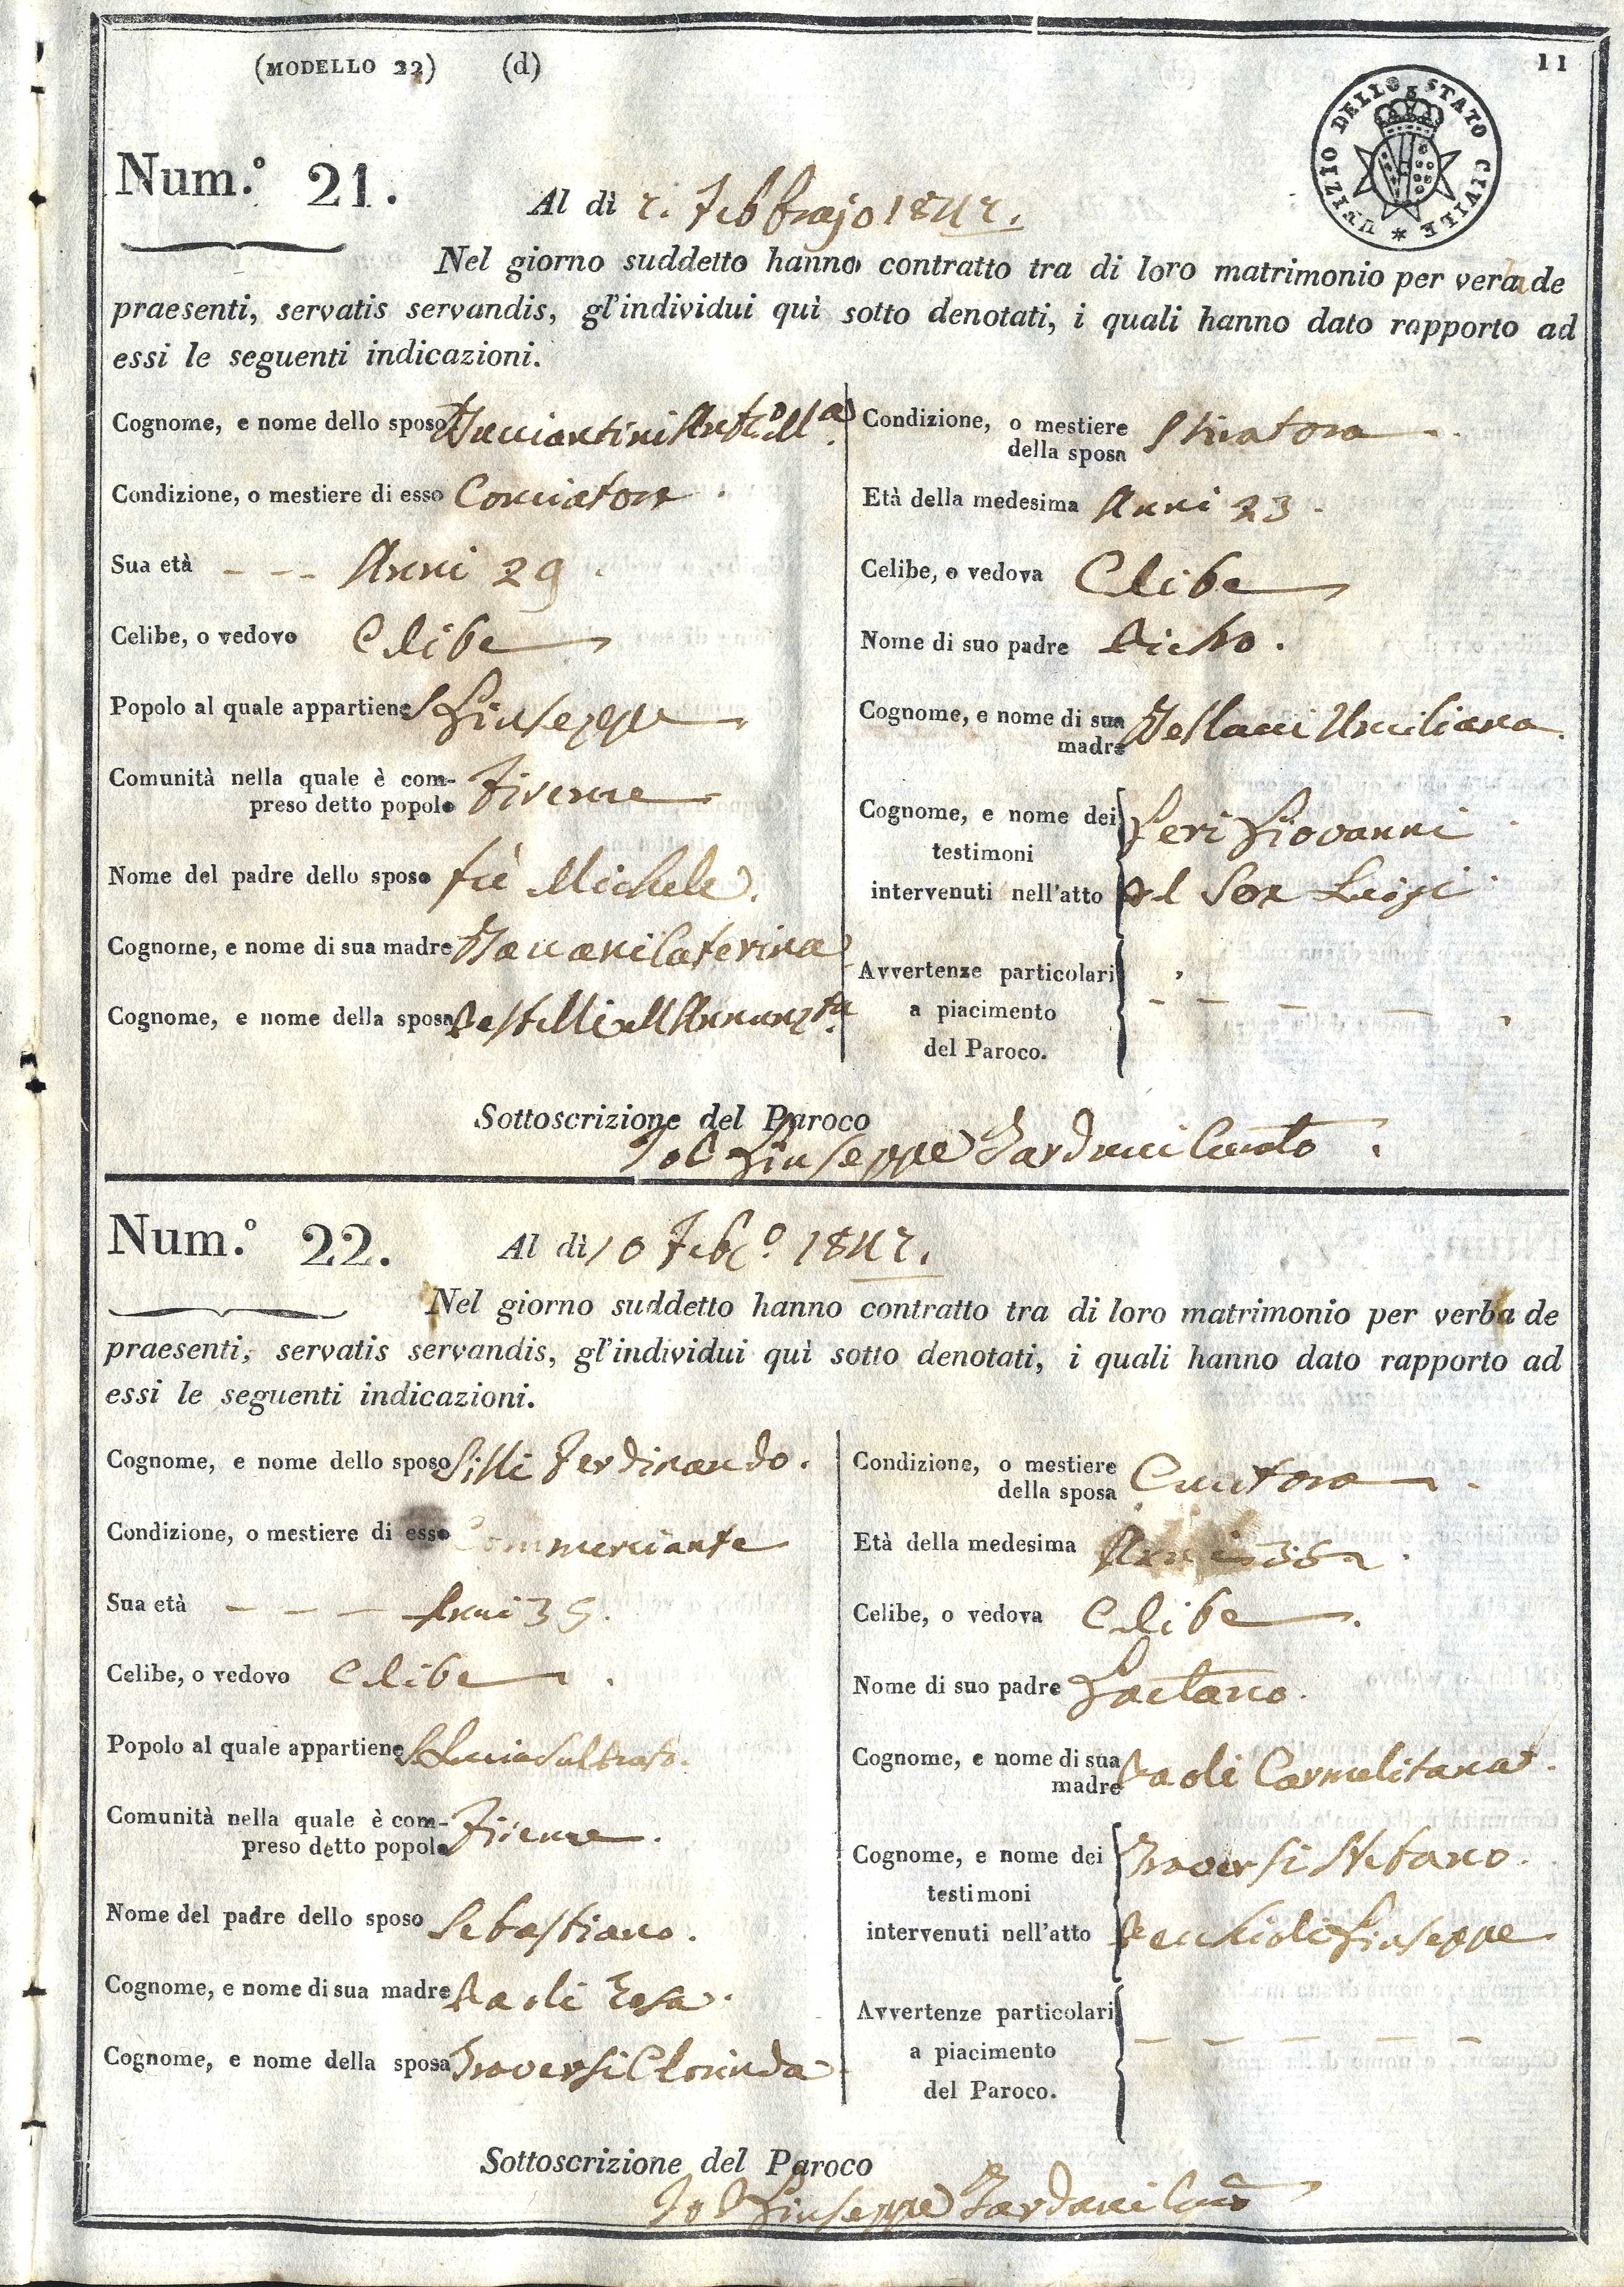 (MODELLO 22) (d)
11
UFIZIO DELLO STATO CIVILE *
Num.º 21.
Al dì 2. Febbrajo 1842.
Nel giorno suddetto hanno contratto tra di loro matrimonio per verba de
praesenti, servatis servandis, gl'individui quì sotto denotati, i quali hanno dato rapporto ad
essi le seguenti indicazioni.
Cognome, e nome dello sposo
Condizione, o mestiere di esso Conciatore
Sua età Anni 29
Celibe, o vedovo Celibe
Popolo al quale appartiene S Giuseppe
Comunità nella quale è com-
preso detto popolo Firenze
Nome del padre dello sposo fù Michele
Cognome, e nome di sua madre Caterina
Cognome, e nome della sposa
Condizione, o mestiere
della sposa Stiratora
Età della medesima Anni 23
Celibe, o vedova Celibe
Nome di suo padre
Cognome, e nome di sua
madre
Cognome, e nome dei Geri Giovanni
testimoni
intervenuti nell'atto Del Sere Luigi
Avvertenze particolari
a piacimento
del Paroco.
Sottoscrizione del Paroco
Giuseppe Curato
Num.º 22.
Al dì 10 Febº. 1842.
Nel giorno suddetto hanno contratto tra di loro matrimonio per verba de
praesenti, servatis servandis, gl'individui quì sotto denotati, i quali hanno dato rapporto ad
essi le seguenti indicazioni.
Cognome, e nome dello sposo Ferdinando.
Condizione, o mestiere di esso Commerciante
Sua età Anni 35.
Celibe, o vedovo Celibe
Popolo al quale appartiene S Lucia sul Prato.
Comunità nella quale è com-
preso detto popolo Firenze.
Nome del padre dello sposo Sebastiano.
Cognome, e nome di sua madre Paoli Rosa.
Cognome, e nome della sposa Traversi Clorinda
Condizione, o mestiere
della sposa Cucitora
Età della medesima Anni
Celibe, o vedova Celibe.
Nome di suo padre Gaetano.
Cognome, e nome di sua
madre Paoli Carmelitana.
Cognome, e nome dei Traversi Stefano.
testimoni
intervenuti nell'atto Giuseppe
Avvertenze particolari
a piacimento
del Paroco.
Sottoscrizione del Paroco
Giuseppe